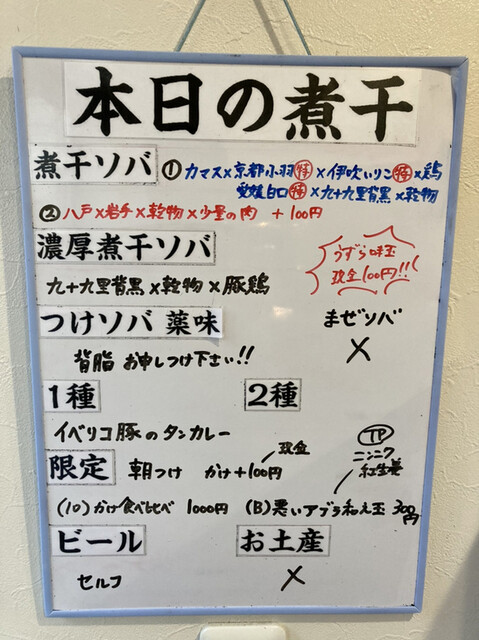 本日の煮干
煮干ソバ ① カマス×京都小羽㊕×伊吹いりこ㊕×鶏
愛媛白口㊕×九十九里背黒×乾物
② 八戸×岩手×乾物×少量の肉 +100円
濃厚煮干ソバ
九十九里背黒×乾物×豚鶏
うずら味玉
現金100円!!
つけソバ 薬味
背脂 お申しつけ下さい!!
まぜソバ
×
1種
2種
イベリコ豚のタンカレー
限定 朝つけ かけ+100円
現金
TP
ニンニク
紅生姜
(10)かけ食べ比べ 1000円 (B)悪いアブラ和え玉 300円
ビール
お土産
セルフ
×